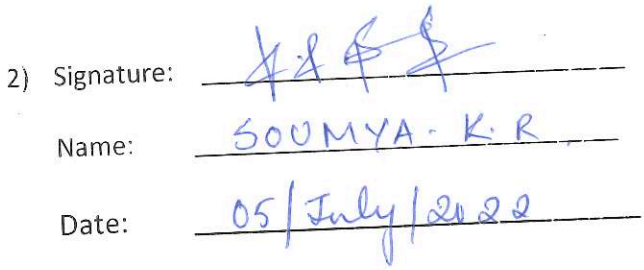 2) Signature:
Name: SOUMYA. K. R
Date: 05/July/2022